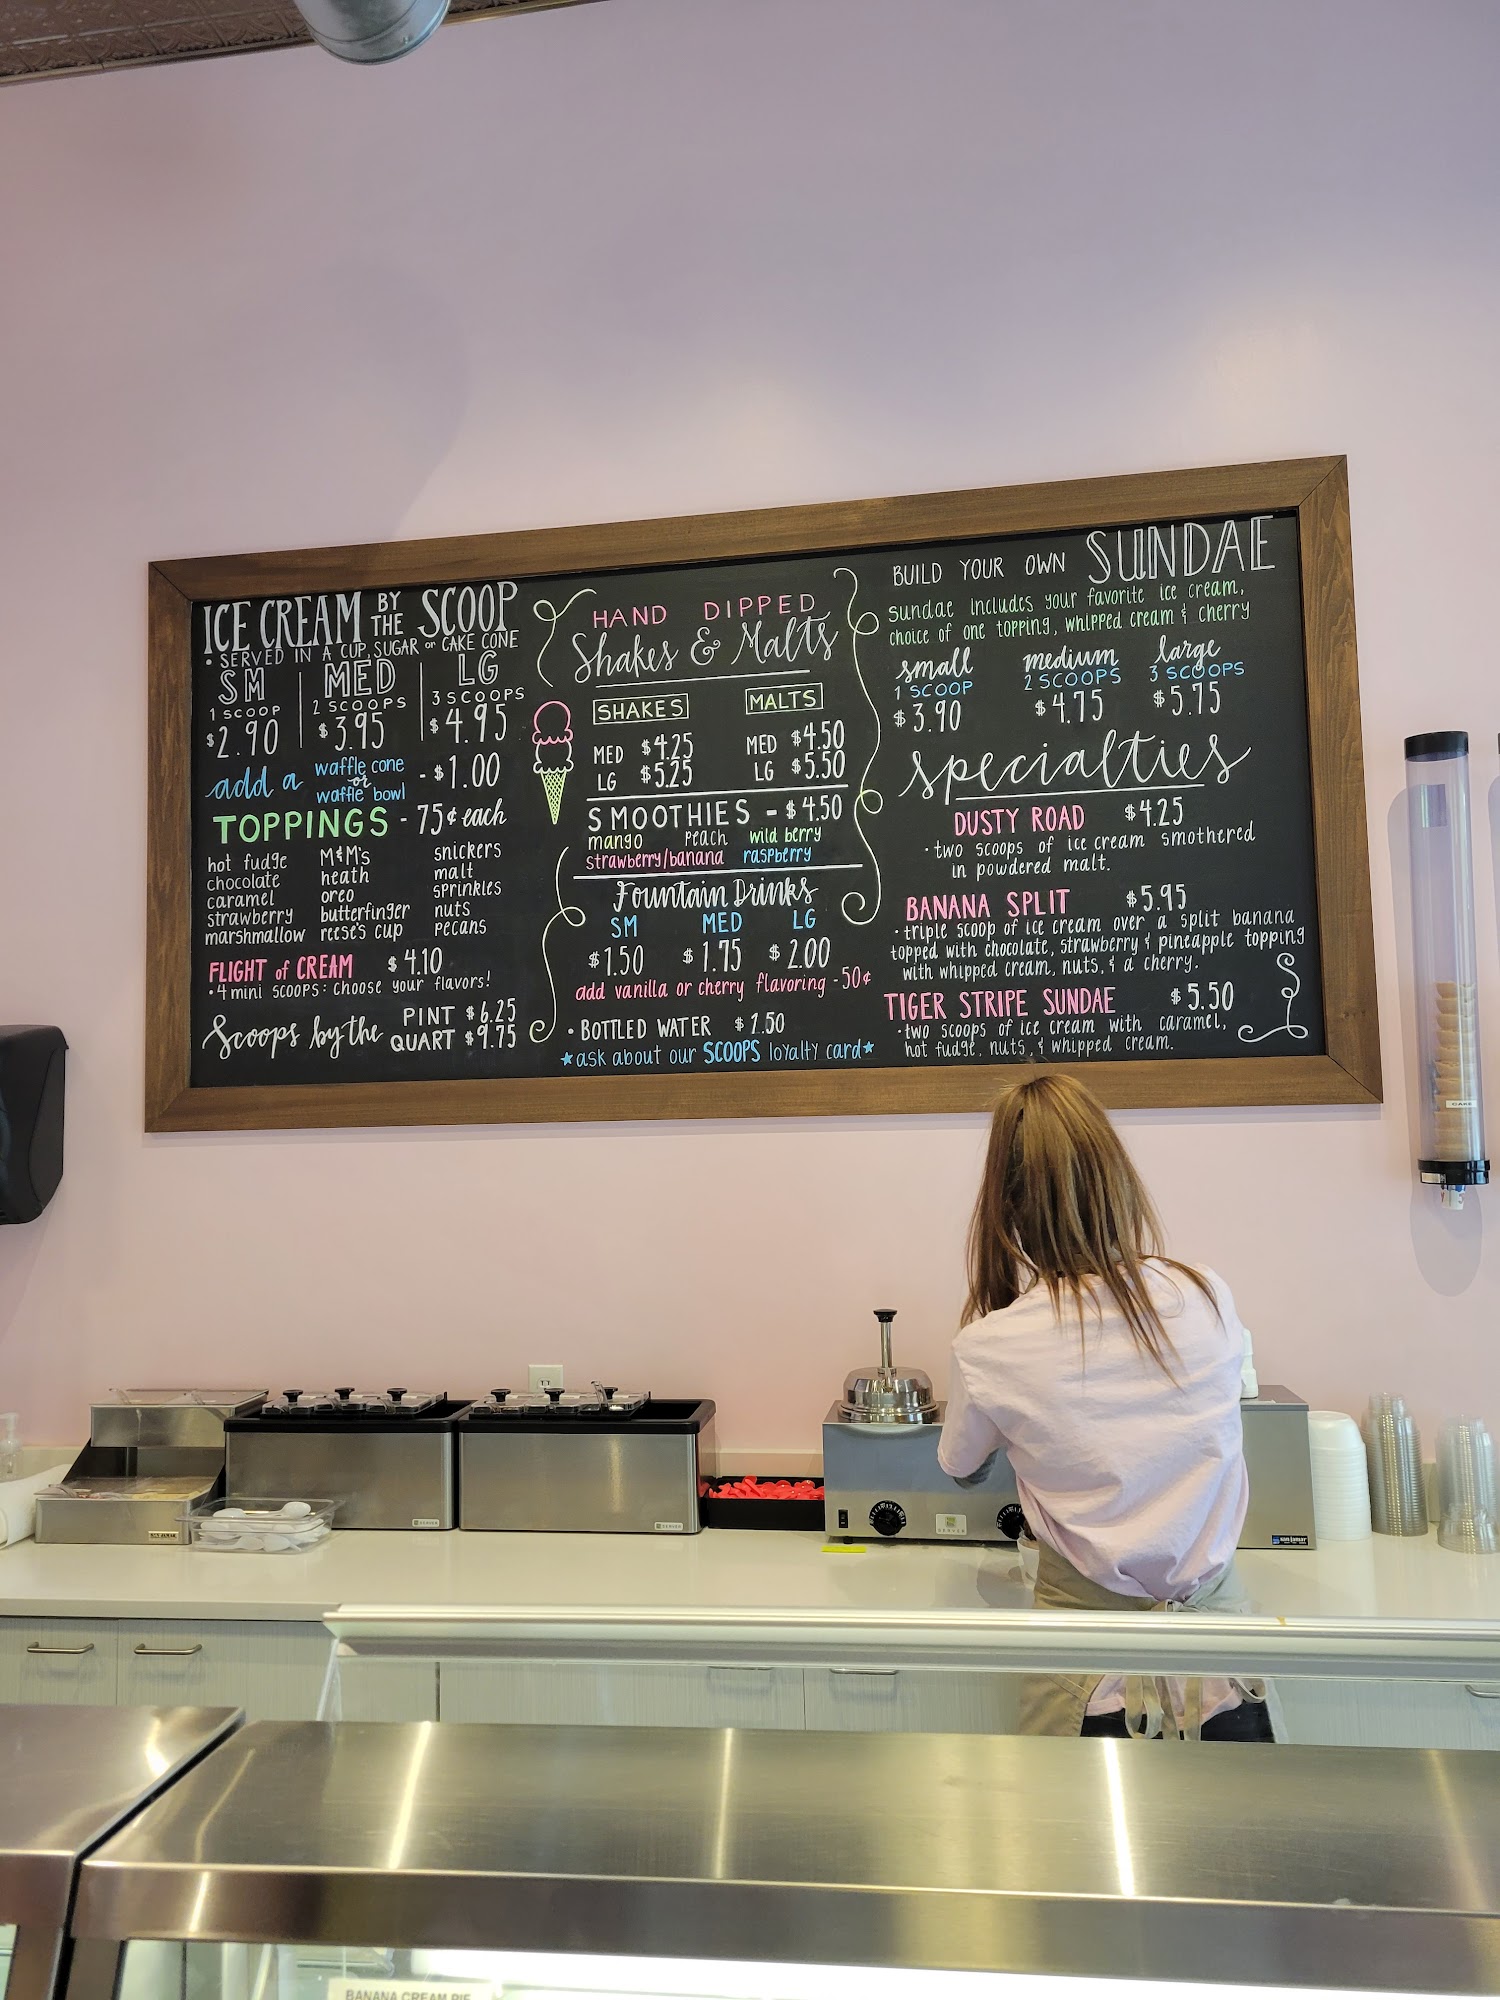 ICE CREAM BY THE SCOOP
• SERVED IN A CUP, SUGAR or CAKE CONE
SM MED LG
1 SCOOP 2 SCOOPS 3 SCOOPS
$2.90 $3.95 $4.95
add a waffle cone or waffle bowl - $1.00
TOPPINGS - 75¢ each
hot fudge M&M's snickers
chocolate heath malt
caramel oreo sprinkles
strawberry butterfinger nuts
marshmallow reese's cup pecans
FLIGHT of CREAM $4.10
• 4 mini scoops: choose your flavors!
Scoops by the PINT $6.25
QUART $9.75
HAND DIPPED
Shakes & Malts
SHAKES MALTS
MED $4.25 MED $4.50
LG $5.25 LG $5.50
SMOOTHIES - $4.50
mango peach wild berry
strawberry/banana raspberry
Fountain Drinks
SM MED LG
$1.50 $1.75 $2.00
add vanilla or cherry flavoring - 50¢
• BOTTLED WATER $1.50
★ask about our SCOOPS loyalty card★
BUILD YOUR OWN SUNDAE
sundae includes your favorite ice cream,
choice of one topping, whipped cream & cherry
small medium large
1 SCOOP 2 SCOOPS 3 SCOOPS
$3.90 $4.75 $5.75
specialties
DUSTY ROAD $4.25
• two scoops of ice cream smothered
in powdered malt.
BANANA SPLIT $5.95
• triple scoop of ice cream over a split banana
topped with chocolate, strawberry & pineapple topping
with whipped cream, nuts, & a cherry.
TIGER STRIPE SUNDAE $5.50
• two scoops of ice cream with caramel,
hot fudge, nuts, & whipped cream.
CAKE
SERVER
SERVER
SERVER
BANANA CREAM PIE